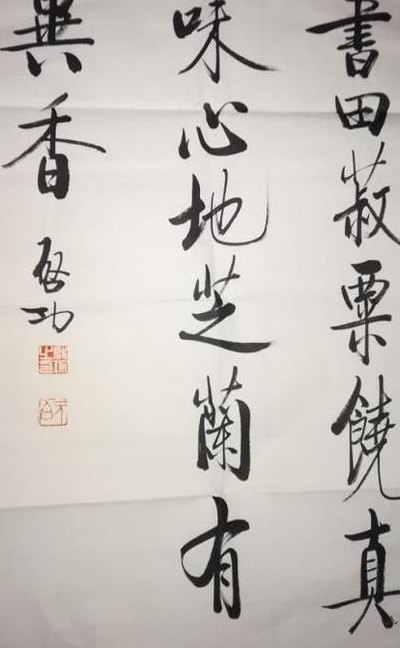 書田菽粟饒真
味心地芝蘭有
異香
啟功